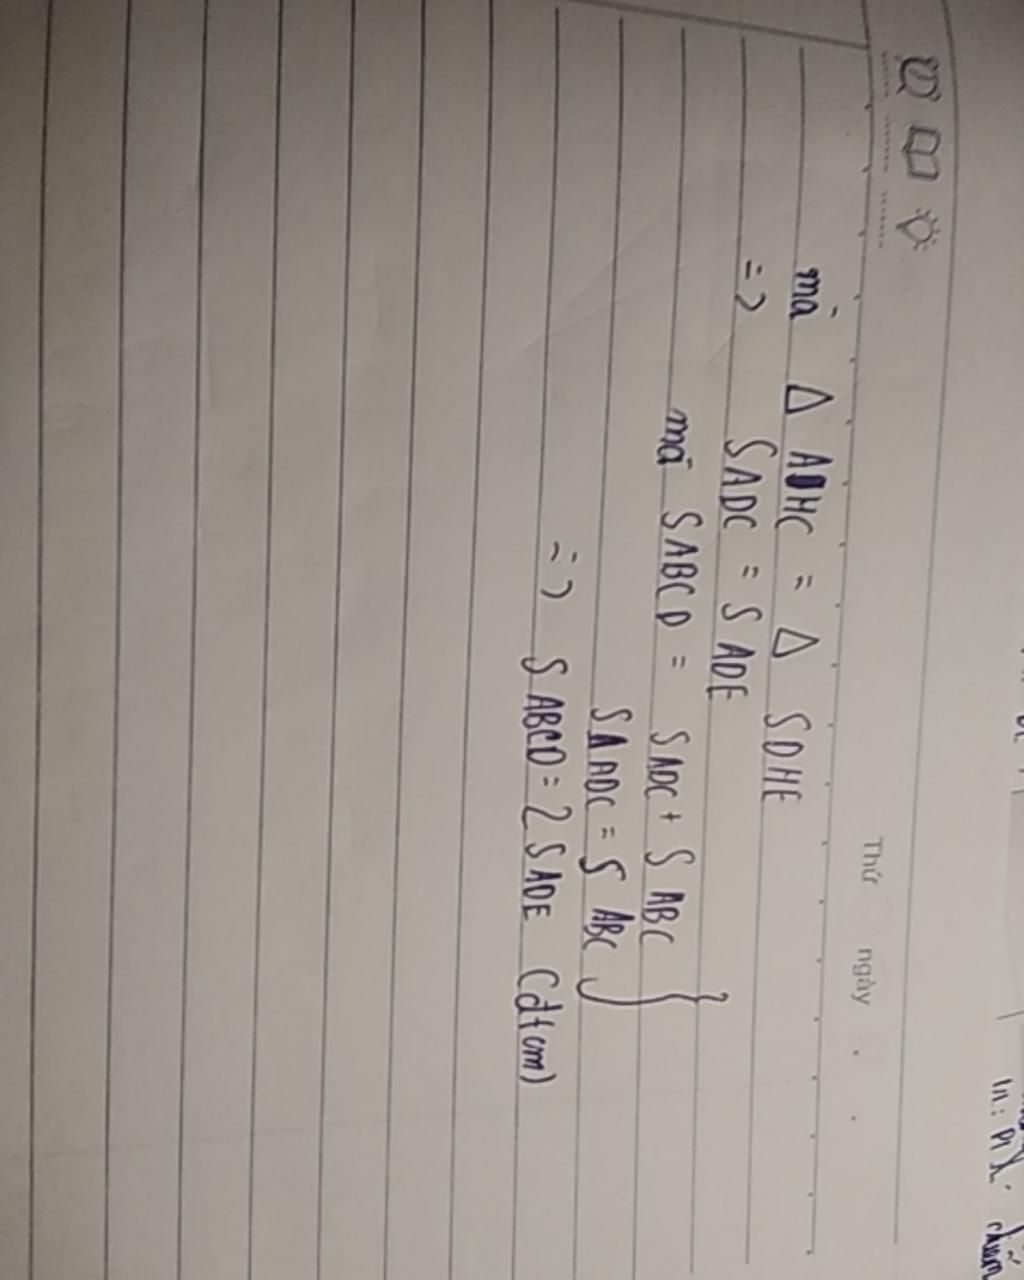 Thứ ngày . .
mà Δ AHC = Δ SDHE
=> SADC = S ADE
mà SABCD = SADC + S ABC }
SΔADC = S ABC
=> S ABCD = 2 S ADE (đtcm)
In: